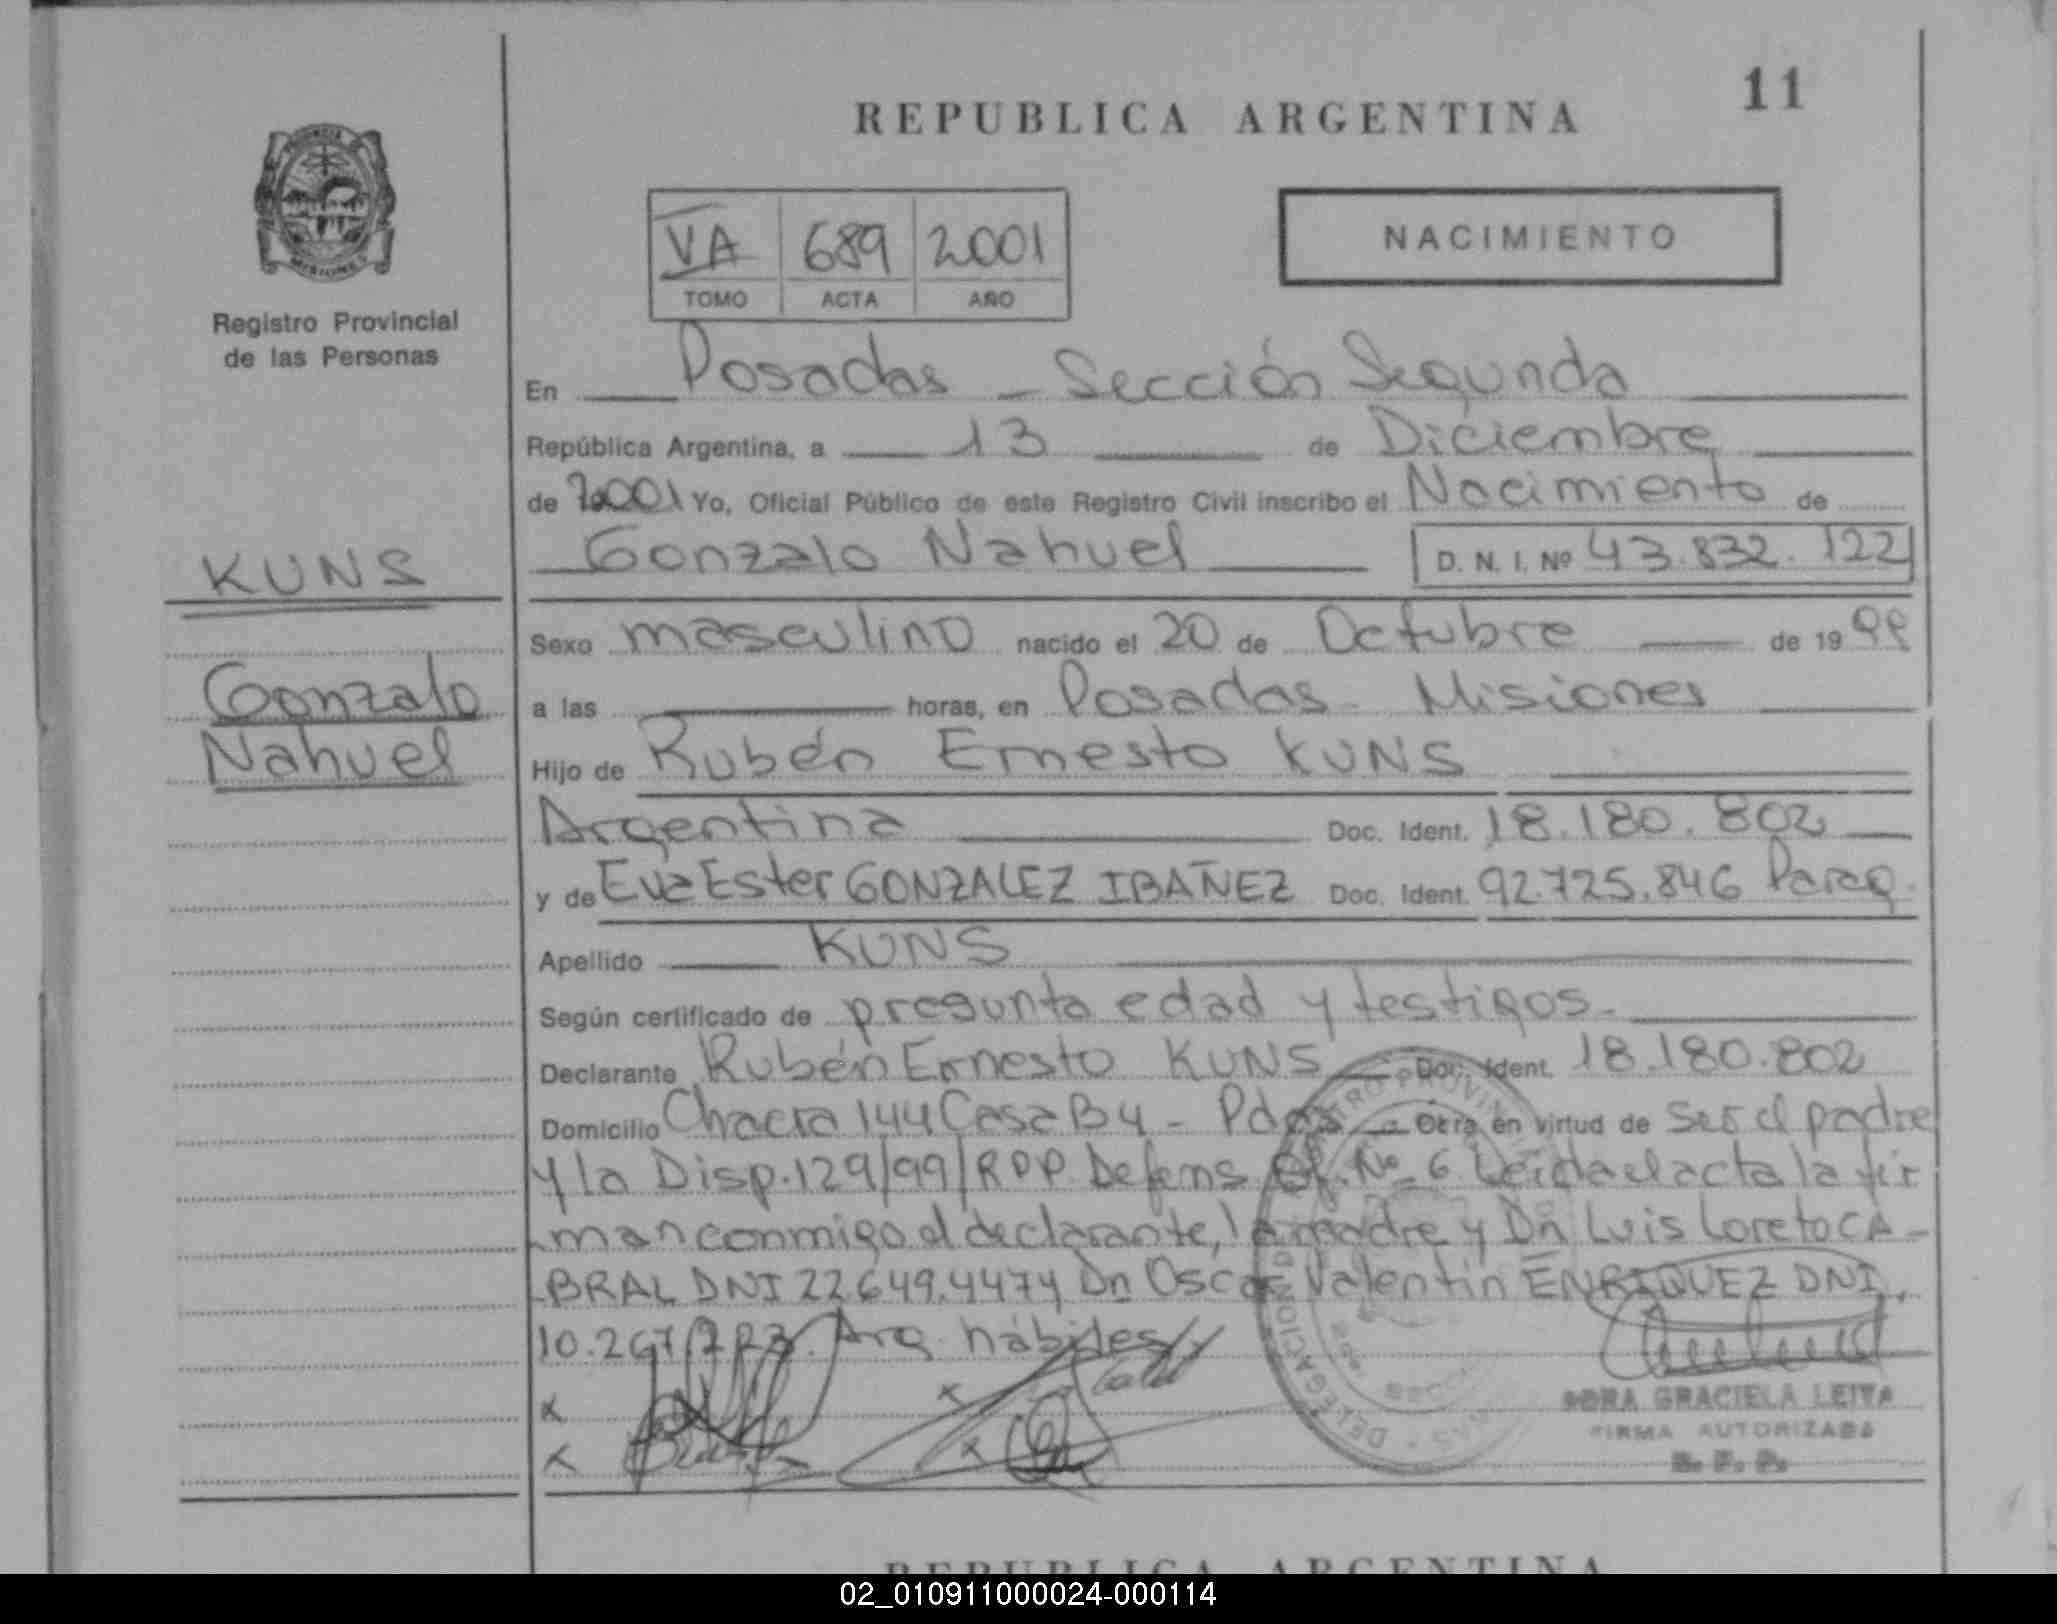 11
REPUBLICA ARGENTINA
NACIMIENTO
VA 689 2001
TOMO ACTA AÑO
MISIONES
Registro Provincial
de las Personas
En Posadas - Sección Segunda
República Argentina, a 13 de Diciembre
de 2001 Yo, Oficial Público de este Registro Civil inscribo el Nacimiento de
KUNS
Gonzalo Nahuel D. N. I. Nº 43.832.122
Sexo masculino nacido el 20 de Octubre de 1999
Gonzalo
a las horas, en Posadas - Misiones
Nahuel
Hijo de Rubén Ernesto KUNS
Argentina Doc. Ident. 18.180.802
y de Eva Ester GONZALEZ IBAÑEZ Doc. Ident. 92.725.846 Parag.
Apellido KUNS
Según certificado de presunta edad y testigos.
Declarante Rubén Ernesto KUNS Doc. Ident. 18.180.802
Domicilio Chacra 144 Casa B4 - Pdas Obra en virtud de ser el padre
y la Disp. 129/99/RPP. Defens. Of. Nº 6 Leida el acta la fir
man conmigo el declarante, la madre y Dn Luis Loreto CA-
BRAL DNI 22.649.447 y Dn Oscar Valentin ENRIQUEZ DNI.
10.267.723. Arg. hábiles
x x
x x
GRACIELA LEIVA
FIRMA AUTORIZADA
R. P. P.
REPUBLICA ARGENTINA
02_010911000024-000114